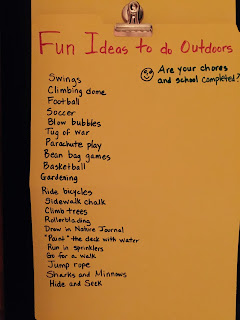 Fun Ideas to do Outdoors
Are your chores
and school completed?
Swings
Climbing dome
Football
Soccer
Blow bubbles
Tug of war
Parachute play
Bean bag games
Basketball
Gardening
Ride bicycles
Sidewalk chalk
Climb trees
Rollerblading
Draw in Nature Journal
"Paint" the deck with water
Run in sprinklers
Go for a walk
Jump rope
Sharks and Minnows
Hide and Seek